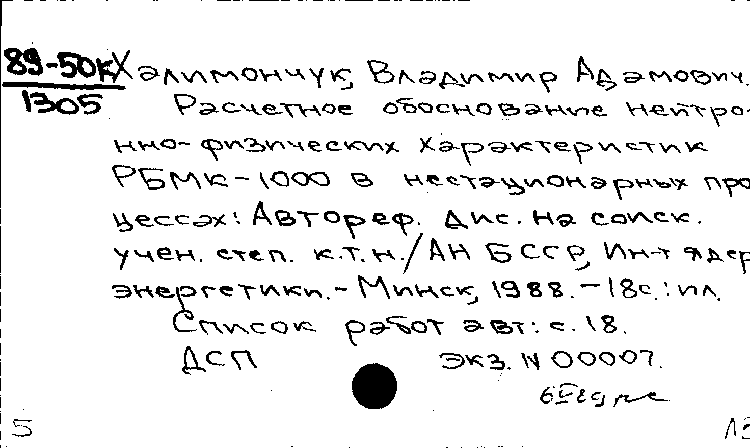 89-50к Халимончук, Владимир Адамович.
1305 Расчетное обоснование нейтро-
нно-физических характеристик
РБМК-1000 в нестационарных про
цессах: Автореф. дис. на соиск.
учен. степ. к.т.н./АН БССР, Ин-т ядер
энергетики.-Минск, 1988.-18с.:ил.
Список работ авт.: с.18.
ДСП экз. N 00007.
5